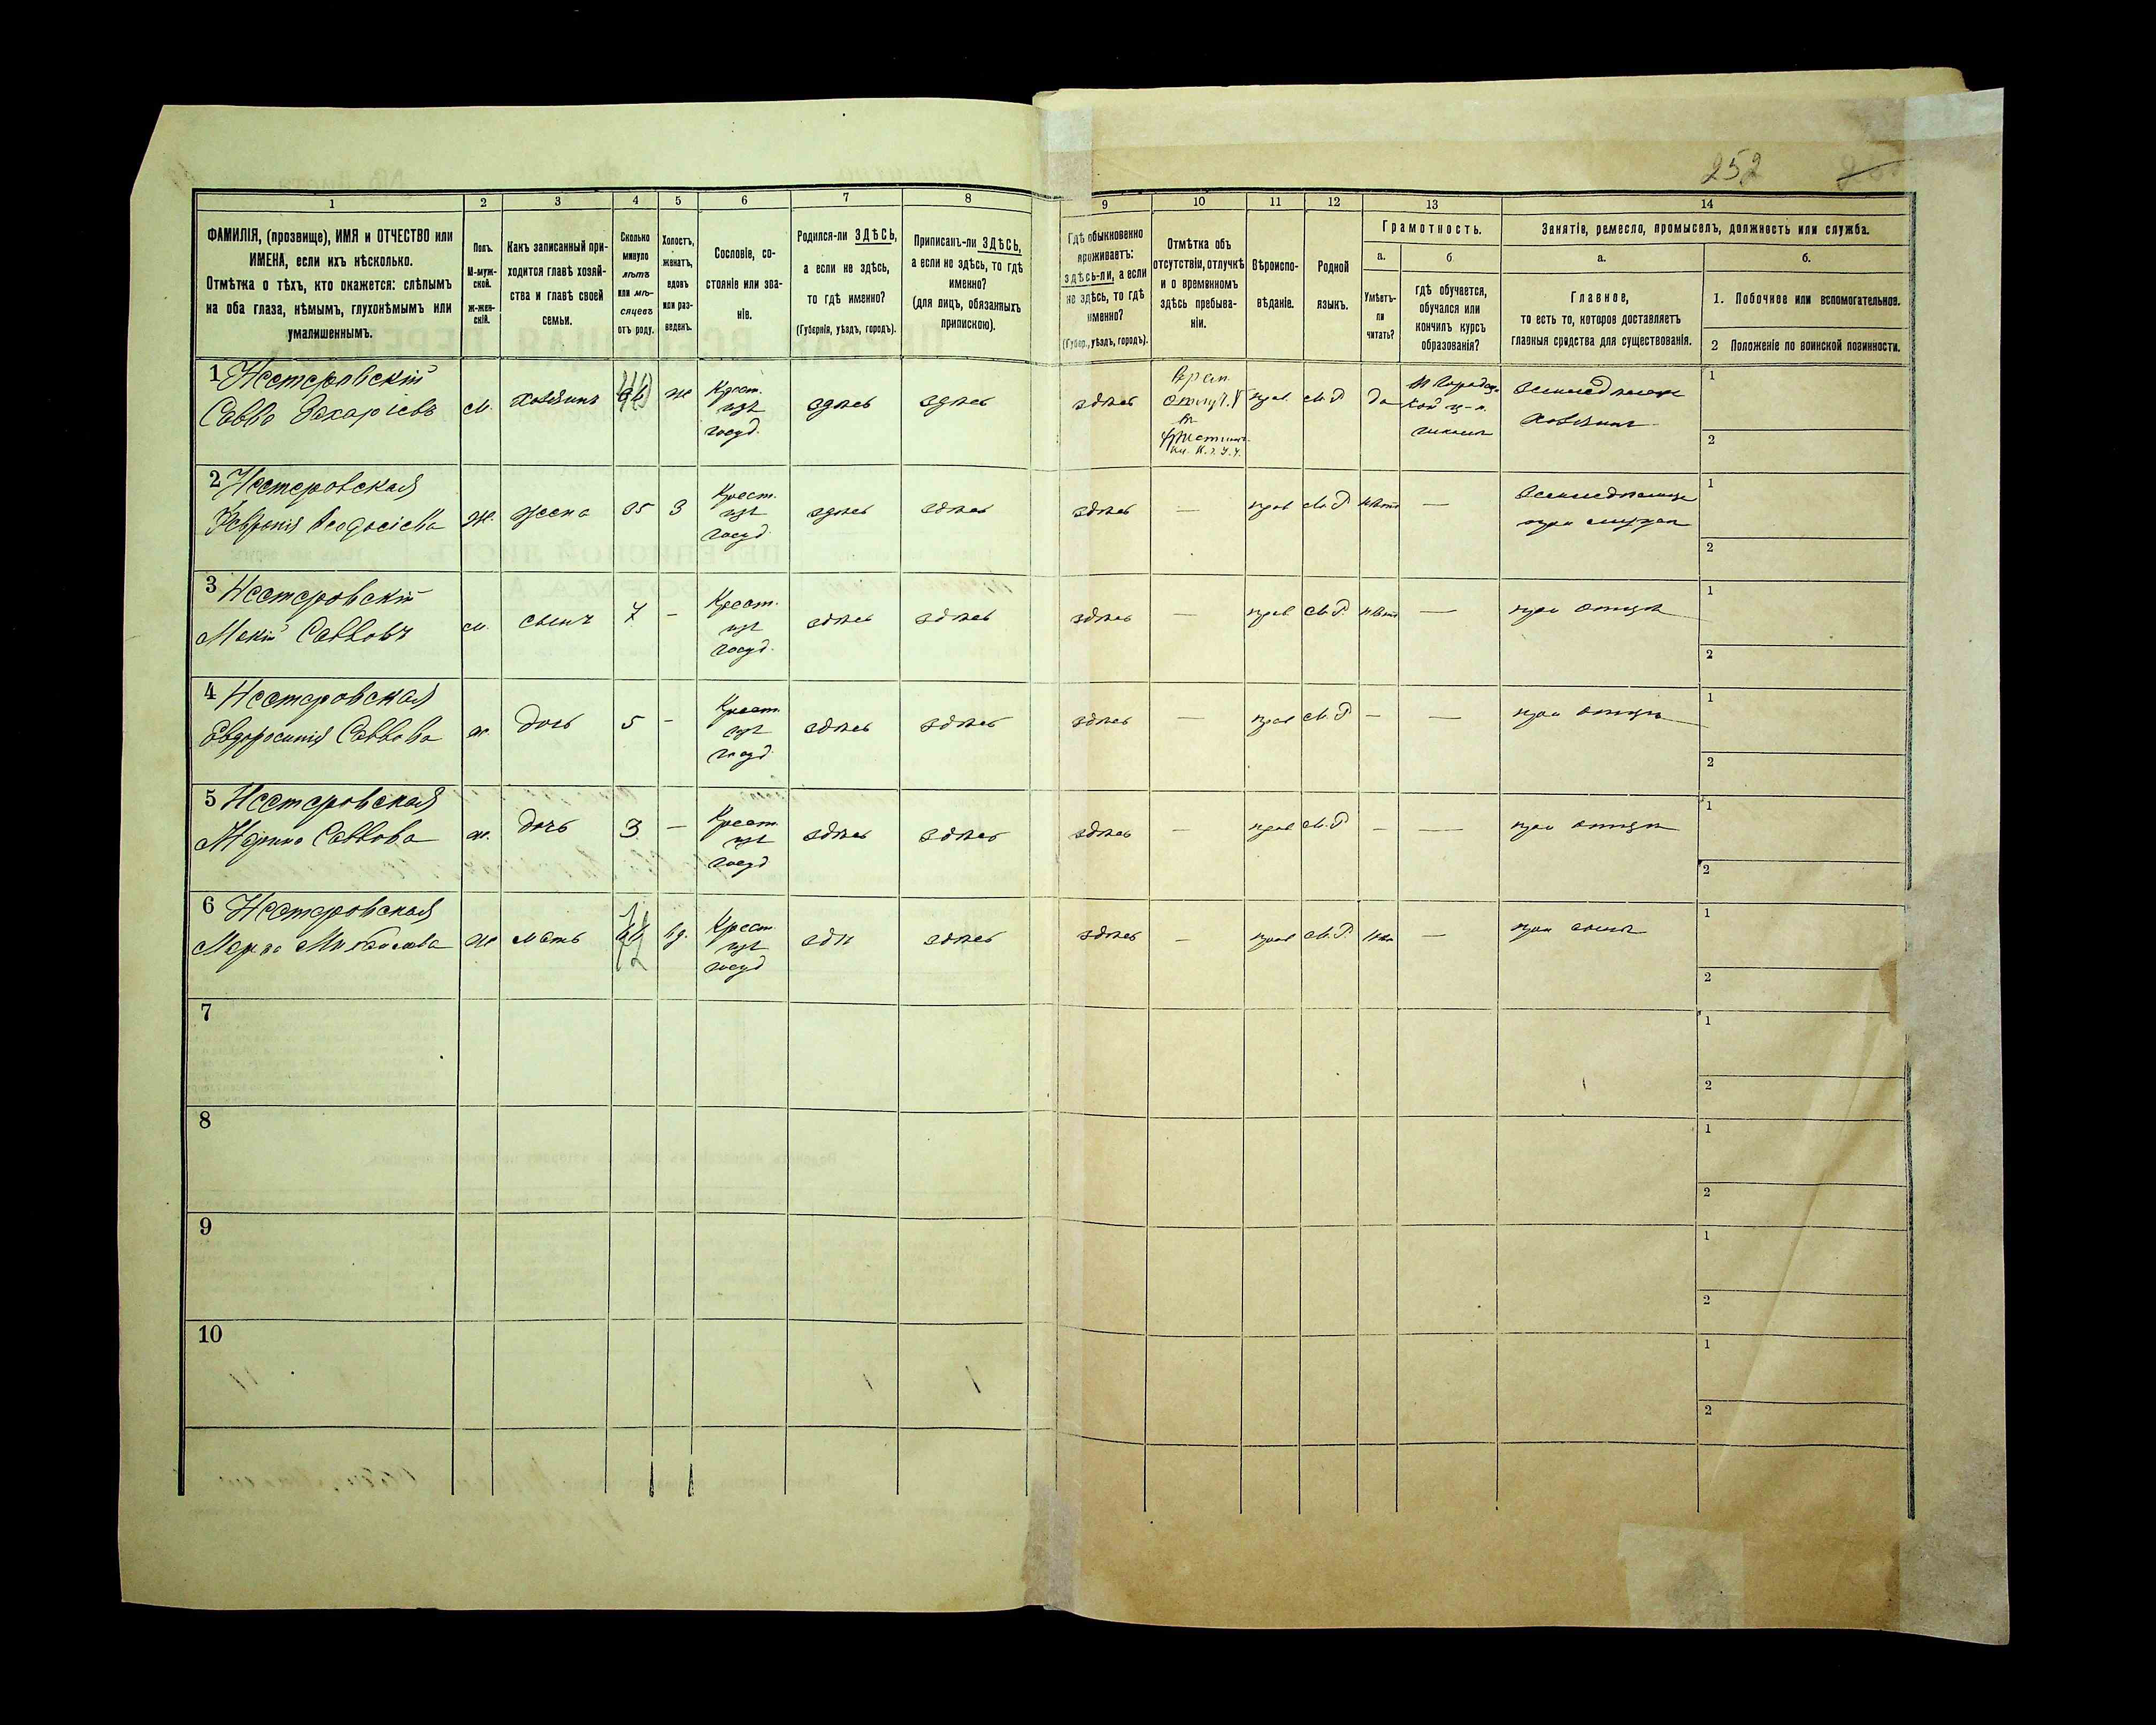 252
1 2 3 4 5 6 7 8 9 10 11 12 13 14
ФАМИЛІЯ, (прозвище), ИМЯ и ОТЧЕСТВО или
ИМЕНА, если ихъ нѣсколько.
Отмѣтка о тѣхъ, кто окажется: слѣпымъ
на оба глаза, нѣмымъ, глухонѣмымъ или
умалишеннымъ.
Полъ.
М-муж-
ской.
ж-жен-
скій.
Какъ записанный при-
ходится главѣ хозяй-
ства и главѣ своей
семьи.
Сколько
минуло
лѣтъ
или мѣ-
сяцевъ
отъ роду.
Холостъ,
женатъ,
вдовъ
или раз-
веденъ.
Сословіе, со-
стояніе или зва-
ніе.
Родился-ли ЗДѢСЬ,
а если не здѣсь,
то гдѣ именно?
(Губернія, уѣздъ, городъ).
Приписанъ-ли ЗДѢСЬ,
а если не здѣсь, то гдѣ
именно?
(для лицъ, обязанныхъ
припискою).
Гдѣ обыкновенно
проживаетъ:
здѣсь-ли, а если
не здѣсь, то гдѣ
именно?
(Губер., уѣздъ, городъ).
Отмѣтка объ
отсутствіи, отлучкѣ
и о временномъ
здѣсь пребыва-
ніи.
Вѣроиспо-
вѣданіе.
Родной
языкъ.
Грамотность.
а.
Умѣетъ-
ли
читать?
б
гдѣ обучается,
обучался или
кончилъ курсъ
образованія?
Занятіе, ремесло, промыселъ, должность или служба.
а.
Главное,
то есть то, которое доставляетъ
главныя средства для существованія.
б.
1. Побочное или вспомогательное.
2 Положеніе по воинской повинности.
1 Нестеровскій
Савва Захаріевъ
м. хозяинъ же
Крест.
изъ
госуд.
здѣсь здѣсь здѣсь
Врем.
отлуч.
въ
прав. М.Р. да
школѣ
Земледѣлецъ
хозяинъ
1
2
2 Нестеровская
Ѳеодосіева
ж. жена 35 З
Крест.
изъ
госуд.
здѣсь здѣсь здѣсь — прав М.Р нѣтъ —
Земледѣлица
при мужѣ
1
2
3 Нестеровскій
Мокій Саввовъ
м. сынъ 7 —
Крест.
изъ
госуд.
здѣсь здѣсь здѣсь — прав М.Р. нѣтъ — при отцѣ
1
2
4 Нестеровская
Евфросинія Саввова
ж. дочь 5 —
Крест.
изъ
госуд
здѣсь здѣсь здѣсь — прав М.Р — — при отцѣ
1
2
5 Нестеровская
Марина Саввова
ж. дочь 3 —
Крест.
изъ
госуд
здѣсь здѣсь здѣсь — прав М.Р — — при отцѣ
1
2
6 Нестеровская
ж мать вд.
Крест
изъ
госуд
здѣсь здѣсь — прав М.Р. — при сынѣ
1
2
7
1
2
8
1
2
9
1
2
10
1
2